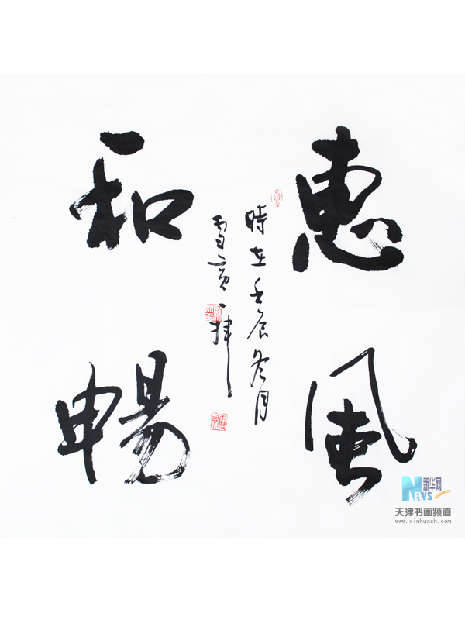 惠風
和暢
時在壬辰冬月
新华网
NEWS
天津书画频道
www.xinhuazh.com